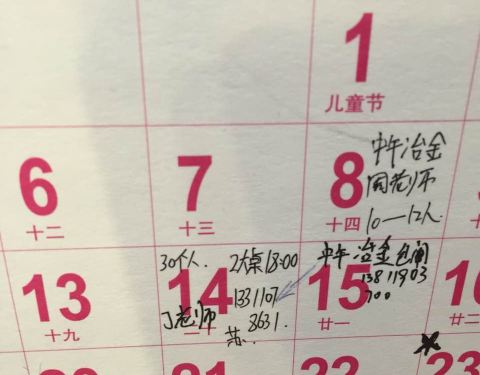 1
儿童节
6
十二
7
十三
8
十四
中午冶金
周老师
10—12人
13
十九
14
二十
30个人. 2大桌 18:00
1331107
8631.
丁老师
苏.
15
廿一
中午 冶金包间
13811903
700
16
廿二
21
22
23